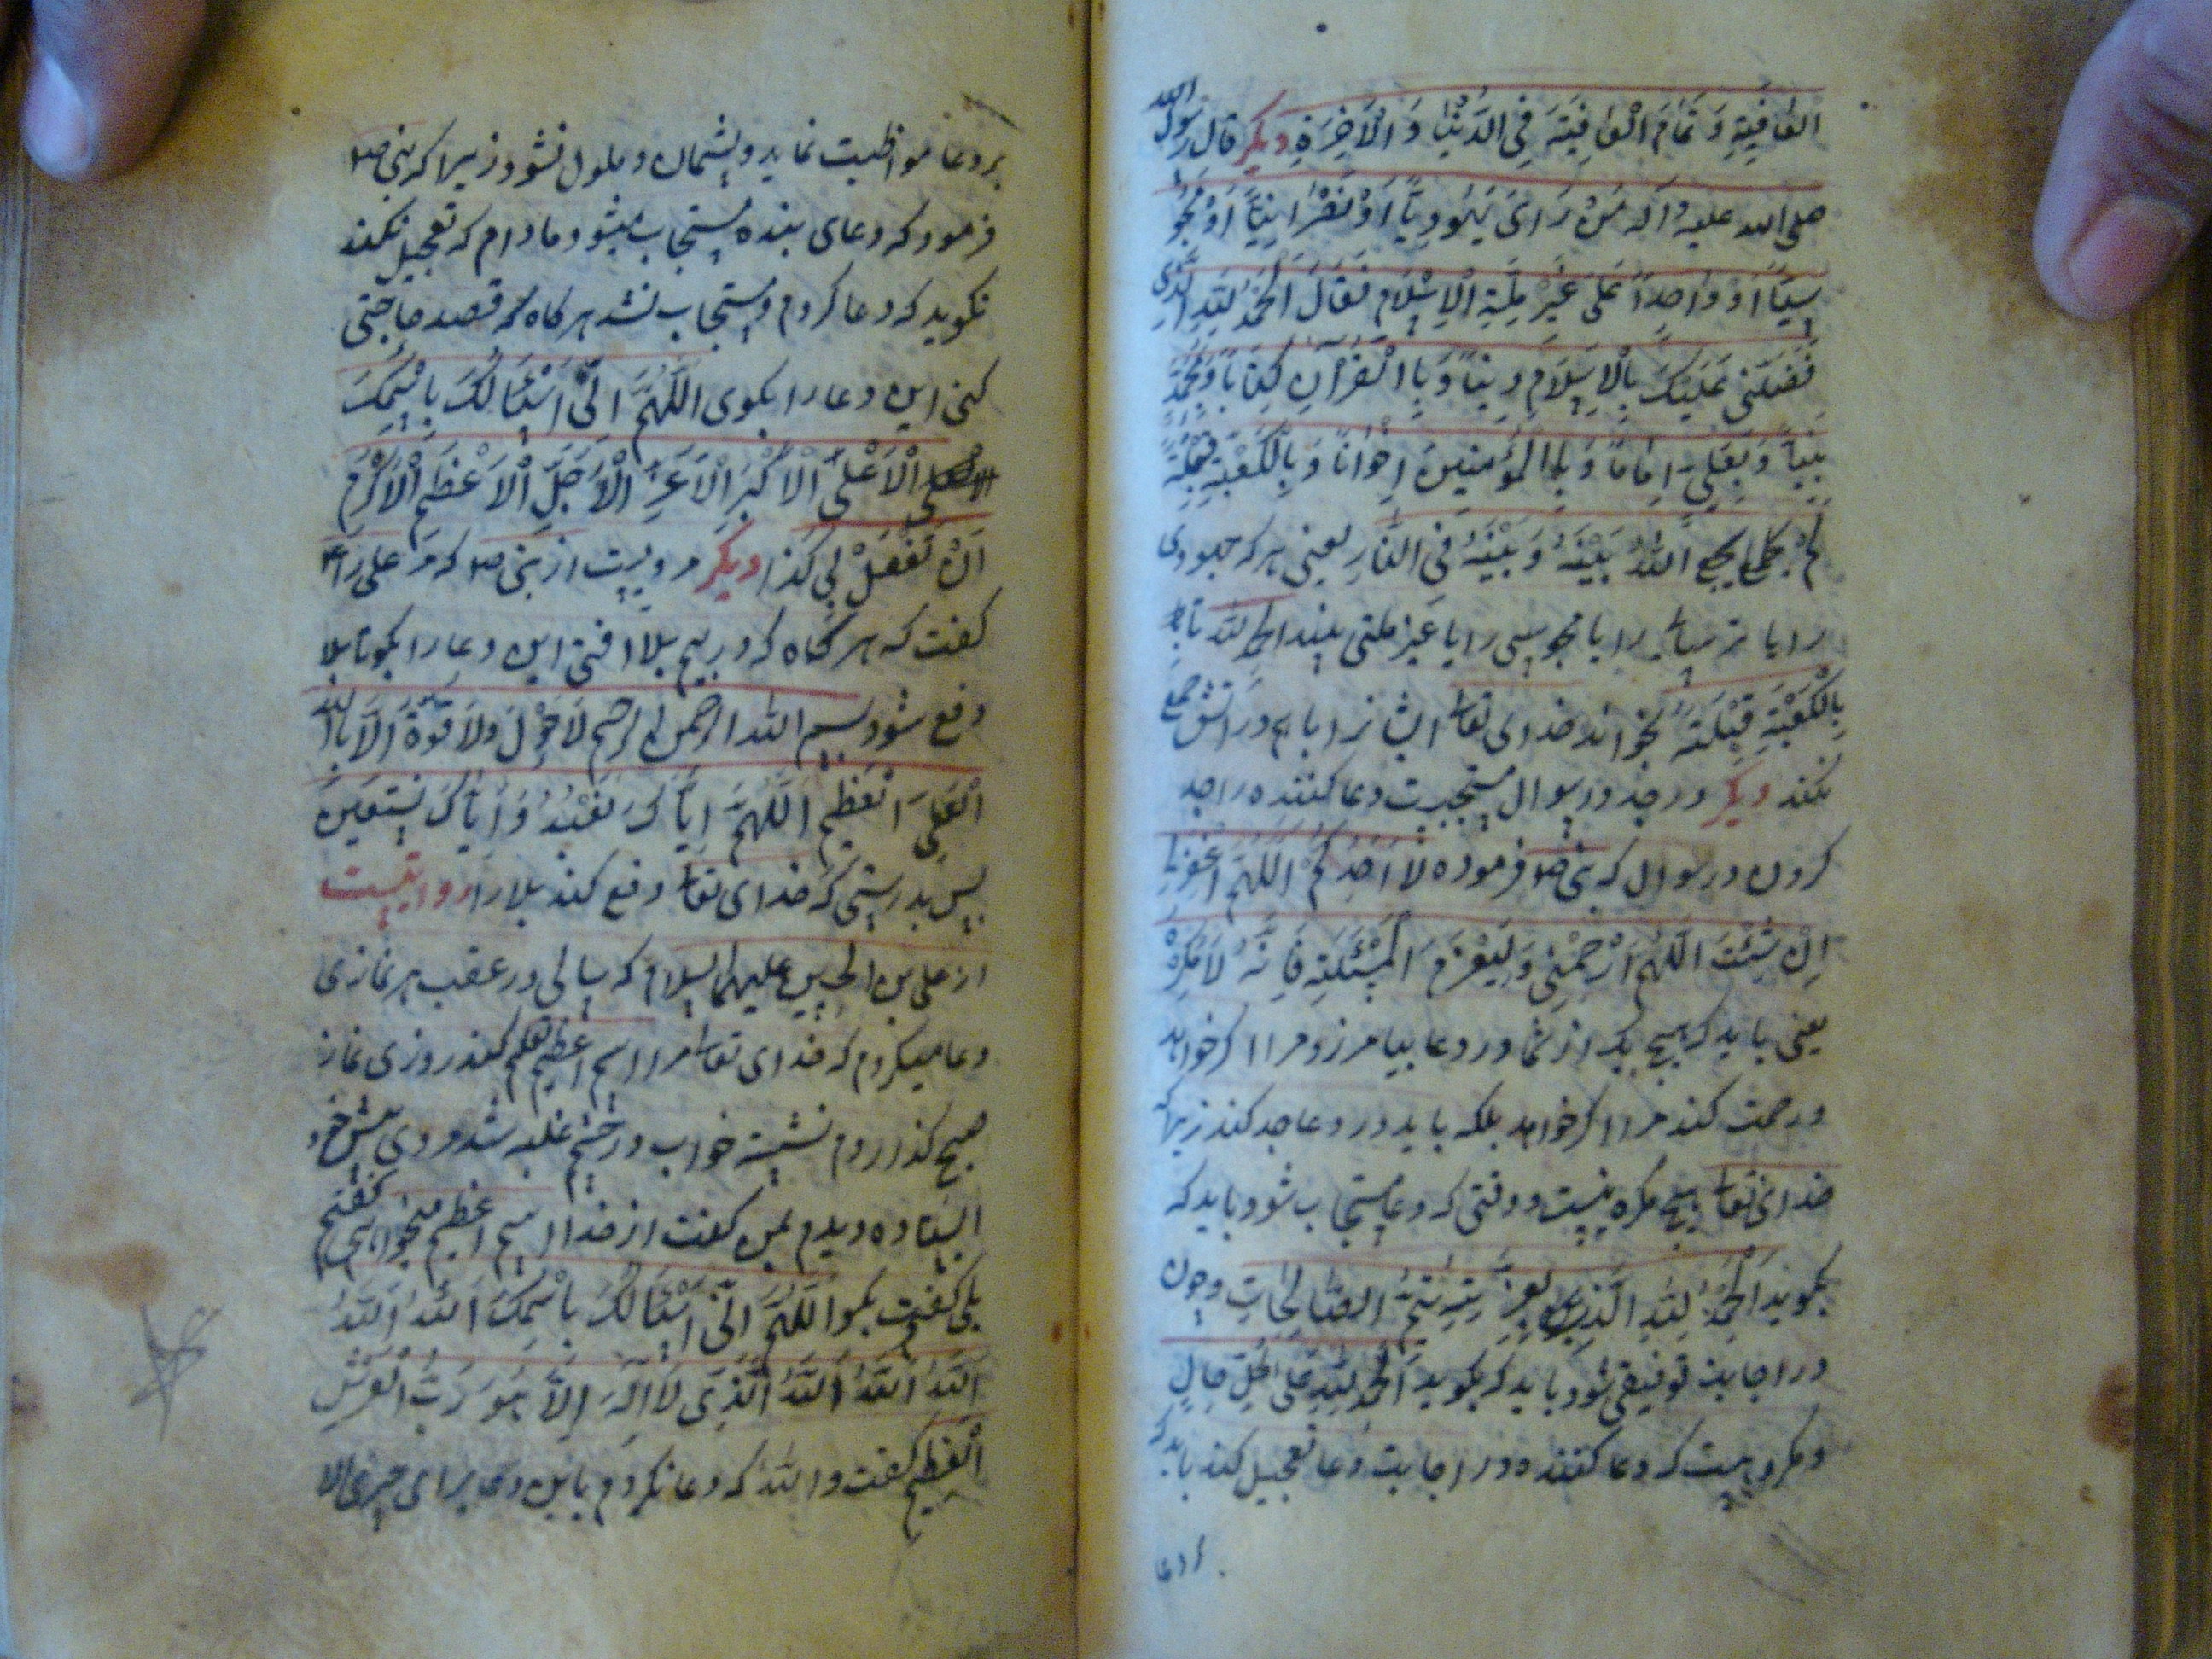 العَافِيَةِ وَ تَمَامَ الْعَافِيَةَ فِی الدُّنْيَا وَ الْآخِرَةِ دیکر قال رسول الله
صلی الله علیه و آله مَنْ رَاَیَ يَهُودِيّاً اَوْ نَصْرَانِيّاً اَوْ مَجُو
سِيّاً اَوْ وَاحِداً عَلَی غَيْرِ مِلَّةِ الْاِسْلَامِ فَقَالَ الْحَمْدُ لِلّٰهِ الَّذِی
فَضَّلَنِی عَلَيْكَ بِالْاِسْلَامِ دِيناً وَ بِالْقُرْآنِ كِتَاباً وَ بِمُحَمَّدٍ
نَبِيّاً وَ بِعَلِیٍّ اِمَاماً وَ بِالْمُؤْمِنِينَ اِخْوَاناً وَ بِالْكَعْبَةِ قِبْلَةً
لَمْ يجمع اللّٰهُ بَيْنَهُ وَ بَيْنَهُ فِی النَّارِ یعنی هر که جهودی
را یا ترسای را یا مجوسی را یا غیر ملتی بیند الحمد لله تا
بِالْكَعْبَةِ قِبْلَةً بخواند خدای تعالی ایشانرا با هم در آتش جمع
نکند دیکر در جد در سوال مستحبست دعا کننده را جد
کردن در سوال که نبی ص فرموده لَا اَحَدُكُمْ اَللّٰهُمَّ اغْفِرْ لِی
اِنْ شِئْتَ اَللّٰهُمَّ ارْحَمْنِی وَ لْيَعْزِمِ الْمَسْئَلَةِ فَاِنَّهُ لَا مُكْرِهَ
یعنی باید که هیچ یک از شما در دعا بیامرز و مرا اکر خواهد
و رحمت کند مرا اکر خواهد بلکه باید در دعا جد کند زیرا که
خدای تعالی هیچ مکره نیست و وقتی که دعا مستجاب شود باید که
بکوید اَلْحَمْدُ لِلّٰهِ الَّذِی بِعِزَّتِهِ تَتِمُّ الصَّالِحَاتِ و چون
در اجابت توقیفی شود باید که بکوید اَلْحَمْدُ لِلّٰهِ عَلَی كُلِّ حَالٍ
و مکروهست که دعا کننده در اجابت دعا تعجیل کند باید که
بر دعا
بر دعا مواظبت نماید و پشیمان و ملول نشود زیرا که نبی ص
فرمود که دعای بنده مستجاب میشود مادام که تعجیل نکند
نکوید که دعا کردم و مستجاب نشد هر کاه که قصد حاجتی
کنی این دعا را بکوی اَللّٰهُمَّ اِنِّی اَسْئَالُكَ بِاسْمِكَ
الْاَعْلَی الْاَكْبَرِ الْاَعَزِّ الْاَجَلِّ الْاَعْظَمِ الْاَكْرَمِ
اَنْ تَفْعَلْ بِی كَذَا دیکر مرویست از نبی ص که مر علی را ع
کفت که هر کاه که در بیم بلا افتی این دعا را بکو تا بلا
دفع شود بسم الله الرحمن الرحیم لَا حَوْلَ وَلَا قُوَّةَ اِلَّا بِاللّٰهِ
الْعَلِیِّ الْعَظِيمِ اَللّٰهُمَّ اِيَّاكَ نَعْبُدُ وَ اِيَّاكَ نَسْتَعِينَ
پس بدرستی که خدای تعالی دفع کند بلا را روایتست
از علی بن الحسین علیهما السلام که سالی در عقب هر نمازی
دعا میکردم که خدای تعالی مرا اسم اعظم تعلیم کند روزی نماز
صبح کذاردم نشسته خواب در چشم غلبه شد مردی پیش خود
ایستاده دیدم بمن کفت از خدا اسم اعظم میخواهی کفتم
بلی کفت بکو اَللّٰهُمَّ اِنِّی اَسْئَالُكَ بِاسْمِكَ اَللّٰهُ اَللّٰهُ
اَللّٰهُ اَللّٰهُ اَللّٰهُ الَّذِی لَا اِلٰهَ اِلَّا هُوَ رَبُّ الْعَرْشِ
الْعَظِيمِ کفت والله که دعا نکردم باین دعا برای چیزی الا